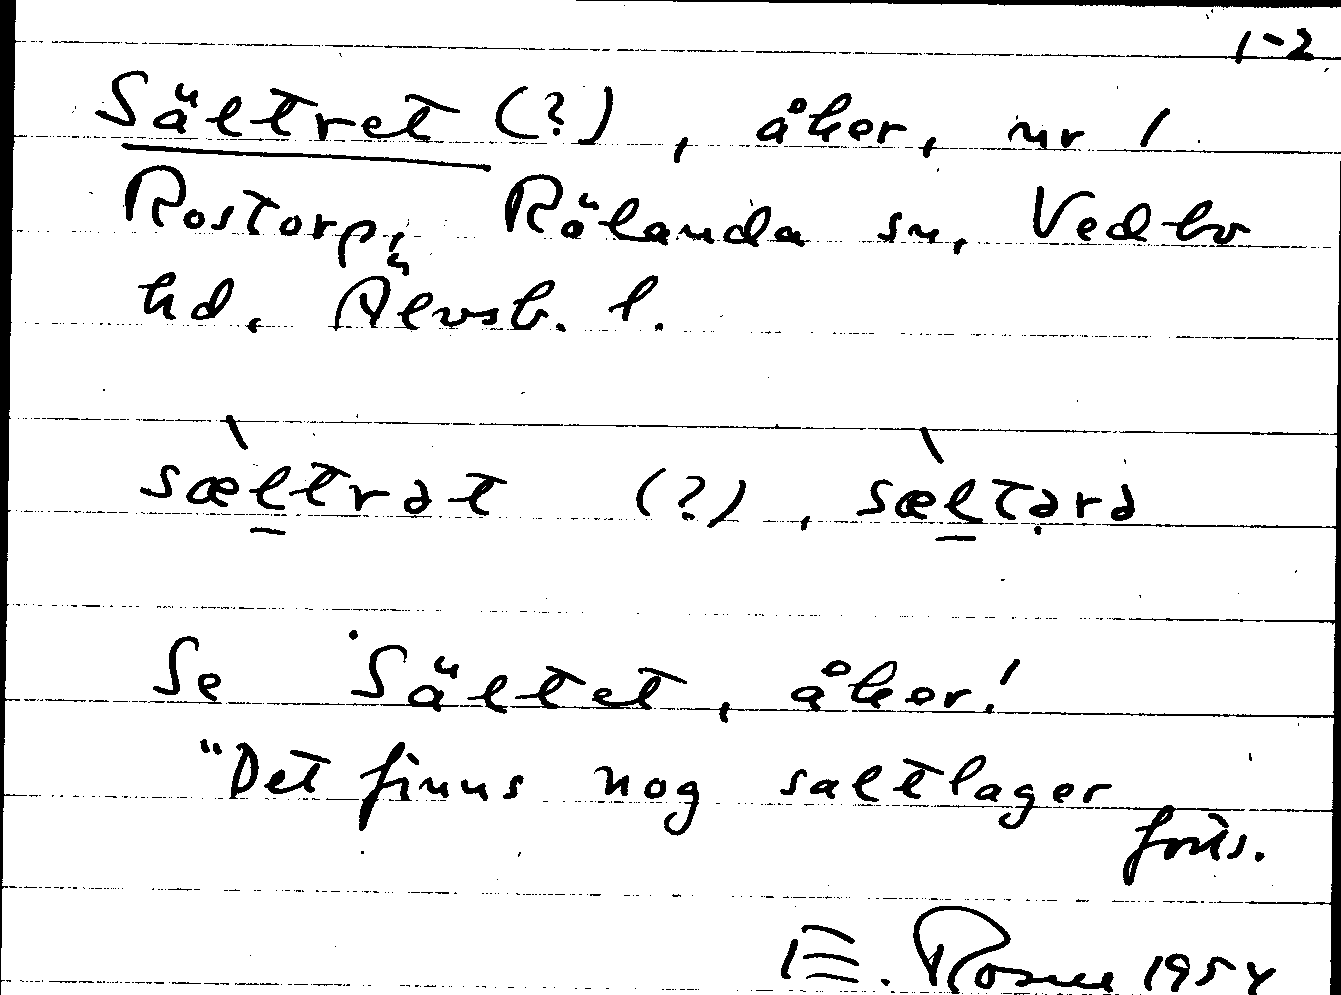 1-2
Sältret (?), åker, nr 1
Rostorp, Rölanda sn, Vedbo
hd, Älvsb. l.
sæ̀ltrət (?), sæ̀ltərə
Se Sältet, åker!
"Det finns nog saltlager
forts.
E. Rosne 1954